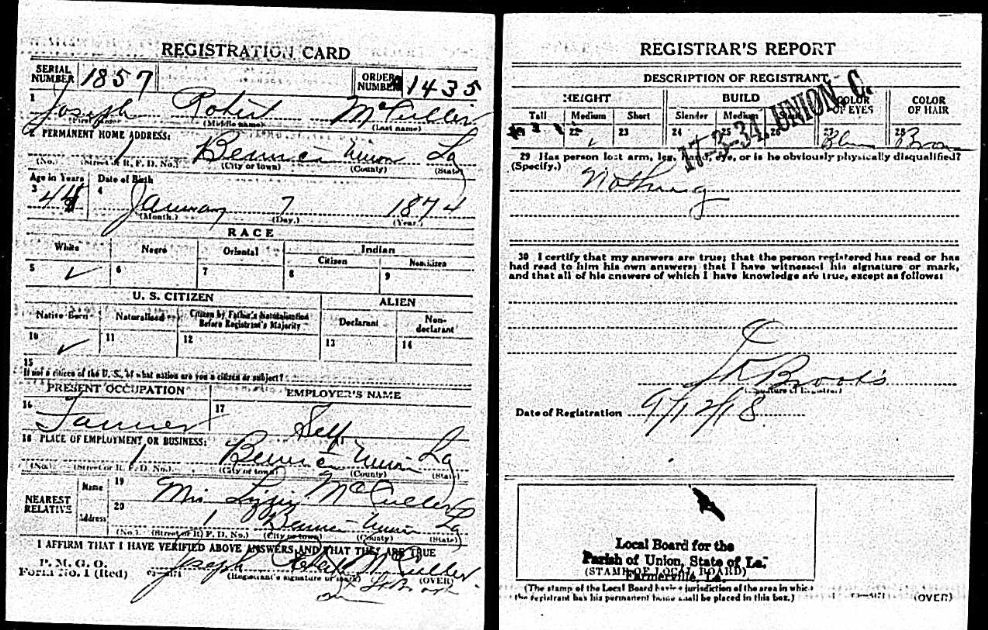 REGISTRATION CARD
SERIAL NUMBER 1857
ORDER NUMBER 1435
1 Joseph Robert McCuller
(First name) (Middle name) (Last name)
2 PERMANENT HOME ADDRESS:
1 Bernice Union La
(No.) (Street or R. F. D. No.) (City or town) (County) (State)
Age in Years Date of Birth
3 44 4 January 7 1874
(Month.) (Day.) (Year.)
RACE
White Negro Oriental Indian
Citizen Noncitizen
5 ✓ 6 7 8 9
U. S. CITIZEN ALIEN
Native Born Naturalized Citizen by Father's Naturalization Before Registrant's Majority Declarant Non-declarant
10 ✓ 11 12 13 14
15
If not a citizen of the U. S., of what nation are you a citizen or subject?
PRESENT OCCUPATION EMPLOYER'S NAME
16 Farmer 17 Self
18 PLACE OF EMPLOYMENT OR BUSINESS:
1 Bernice Union La
(No.) (Street or R. F. D. No.) (City or town) (County) (State)
NEAREST RELATIVE
Name 19 Mrs McCuller
Address 20 1 Bernice Union La
(No.) (Street or R. F. D. No.) (City or town) (County) (State)
I AFFIRM THAT I HAVE VERIFIED ABOVE ANSWERS AND THAT THEY ARE TRUE
P. M. G. O.
Form No. 1 (Red)
Joseph Robert McCuller
(Registrant's signature or mark) (OVER)
REGISTRAR'S REPORT
DESCRIPTION OF REGISTRANT
17-3-34. UNION, C.
HEIGHT BUILD COLOR OF EYES COLOR OF HAIR
Tall Medium Short Slender Medium
22 23 24 25 26 27 Blue 28 Brown
29 Has person lost arm, leg, hand, eye, or is he obviously physically disqualified?
(Specify.) Nothing
30 I certify that my answers are true; that the person registered has read or has
had read to him his own answers; that I have witnessed his signature or mark,
and that all of his answers of which I have knowledge are true, except as follows:
Brooks
(Signature of Registrar)
Date of Registration 9/12/18
Local Board for the
Parish of Union, State of La.
Farmerville, La.
(STAMP OF LOCAL BOARD)
(The stamp of the Local Board having jurisdiction of the area in which
the registrant has his permanent home shall be placed in this box.)
(OVER)